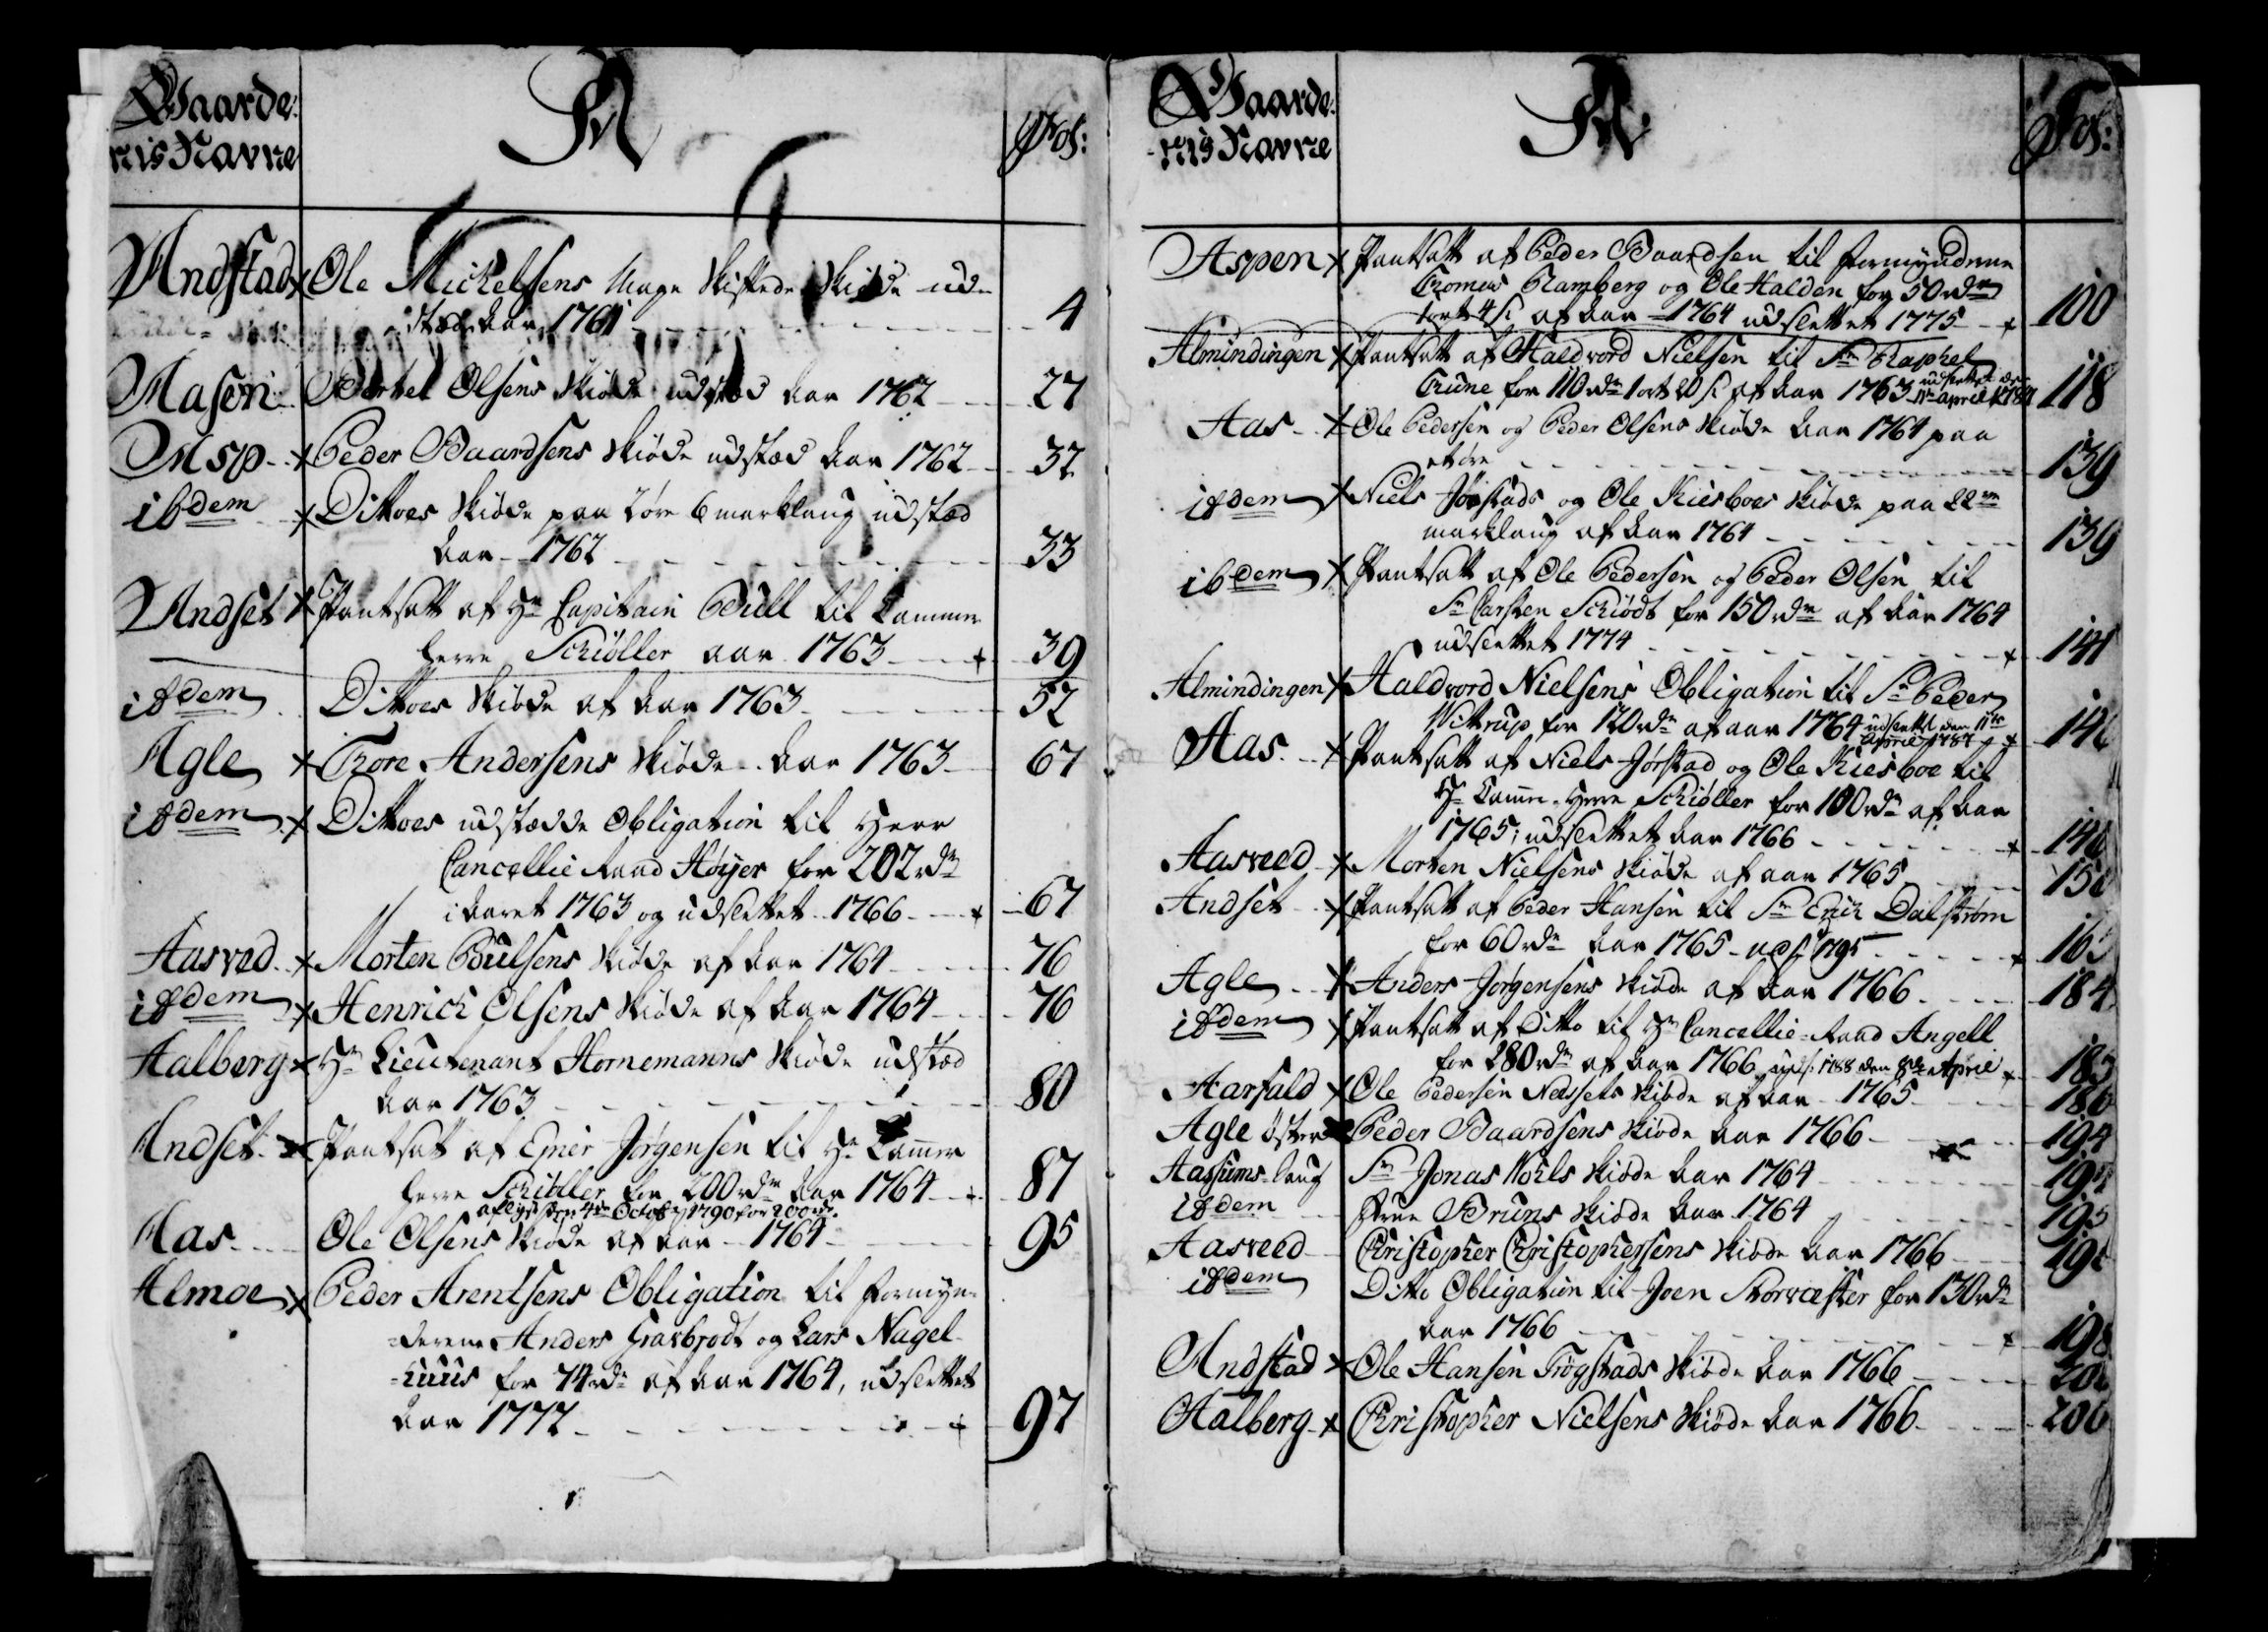 Gaarde-
nis Navne
A
Fol:
Andstad x Ole Mickelsens Mage Skiftede Skiøde ud-
stæd Aar 1761 4
Aasen Bertel Olsens Skiøde udstæd Aar 1762 27
Asp x Peder Baardsens Skiøde udstæd Aar 1762 32
ibdem x Dittoes Skiøde paa 2 øre 6 marklaug udstæd
Aar 1762 33
Andset x Pantsatt af Hr Capitain Bull til Cammer
herre Schiøller aar 1763 39
ibdem Dittoes Skiøde af Aar 1763 52
Agle x Thore Andersens Skiøde Aar 1763 67
ibdem x Dittoes udstædde Obligation til Herr
Cancellie Raad Høyer for 202 rdr
i Aaret 1763 og udslettet 1766 67
Aasved x Morten Bulsens Skiøde af Aar 1764 76
ibdem x Henrich Olsens Skiøde af Aar 1764 76
Aalberg x Hr Lieutenant Hornemanns Skiøde udstæd
Aar 1763 80
Andset x Pantsatt af Jørgensen til Hr Cammer
herre Schiøller for 200 rdr Aar 1764 87
aflyst den 4de Octob 1790 for 200 rdr
Aas Ole Olsens Skiøde af Aar 1764 95
Almoe x Peder Arentsens Obligation til formyn-
derene Anders Gravbrodt og Lars Nagel-
huus for 74 rdr af Aar 1764, udslettet
Aar 1772 97
Gaarde-
nis Navne
A
Fol:
Aspen x Pantsatt af Peder Baardsen til formynderne
Thomas Ramberg og Ole Halden for 50 rdr
1 ort 4 s af Aar 1764 udslettet 1775 100
Almindingen x Pantsatt af Haldvord Nielsen til Sr Raphel
Trune for 110 rdr 1 ort 20 s af Aar 1763 udslettet den
11te April 1787 118
Aas x Ole Pedersen og Peder Olsens Skiøde Aar 1764 paa
øre 139
ibdem x Niels Jørstads og Ole Kiesboes Skiøde paa 22
marklaug af Aar 1764 139
ibdem x Pantsatt af Ole Pedersen og Peder Olsen til
Sr Carsten Schiødt for 150 rdr af Aar 1764
udslettet 1774 141
Almindingen x Haldvord Nielsens Obligation til Sr Peder
Wittrup for 120 rdr af aar 1764 udslettet den 11te
April 1787
Aas x Pantsatt af Niels Jørstad og Ole Kiesboe til
Hr Camer-Herre Schiøller for 100 rdr af Aar
1765; udslettet Aar 1766
Aasveed x Morten Nielsens Skiøde af aar 1765
Andset x Pantsatt af Peder Hansen til Sr Erich Dalstrøm
for 60 rdr Aar 1765 uds: 1795
Agle x Anders Jørgensens Skiøde af Aar 1766 184
ibdem x Pantsatt af Ditto til Hr Cancellie-Raad Angell
for 280 rdr af Aar 1766 uds: 1788 den 8de April 185
Aarfald x Ole Pedersen Næssets Skiøde af Aar 1765 186
Agle Øster Peder Baardsens Skiøde Aar 1766 194
Aassums-laug Sr Jonas Kohls Skiøde Aar 1764
ibdem Frue Bruns Skiøde Aar 1764 195
Aasveed Christopher Christophersens Skiøde Aar 1766
ibdem Ditto Obligation til Joen Storvæster for 130 rdr
Aar 1766 198
Andstad x Ole Hansen Trøgstads Skiøde Aar 1766
Aalberg x Christopher Nielsens Skiøde Aar 1766 206